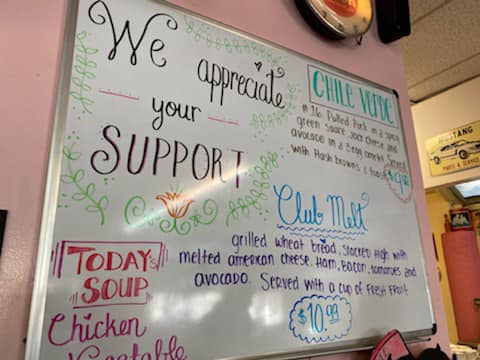 We appreciate
your
SUPPORT
CHILE VERDE
#16 Pulled Pork in a spicy
green sauce, Jack cheese and
avocado in a 3 egg omelet. Served
with Hash browns & toast
Club Melt
grilled wheat bread, stacked high with
melted american cheese, Ham, Bacon, tomatoes and
avocado. Served with a cup of Fresh Fruit
$10.99
TODAY's
SOUP
Chicken
Vegetable
MUSTANG
PARTS & SERVICE